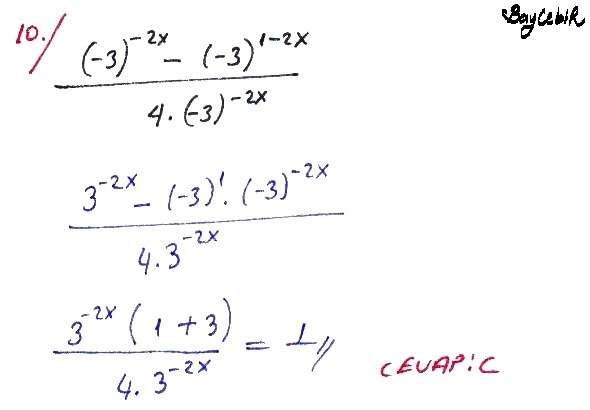 BaycebiR
10.
(-3)^{-2x} - (-3)^{1-2x}
4.(-3)^{-2x}
3^{-2x} - (-3)^1.(-3)^{-2x}
4.3^{-2x}
3^{-2x}(1+3)
4.3^{-2x}
= 1
CEVAP:C